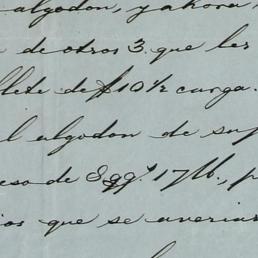 algodon, y ahora
de otros 3. que les
flete de $10½ carga.
el algodon de sup
eso de 8 qqs. 17 lb., p
ios que se averias